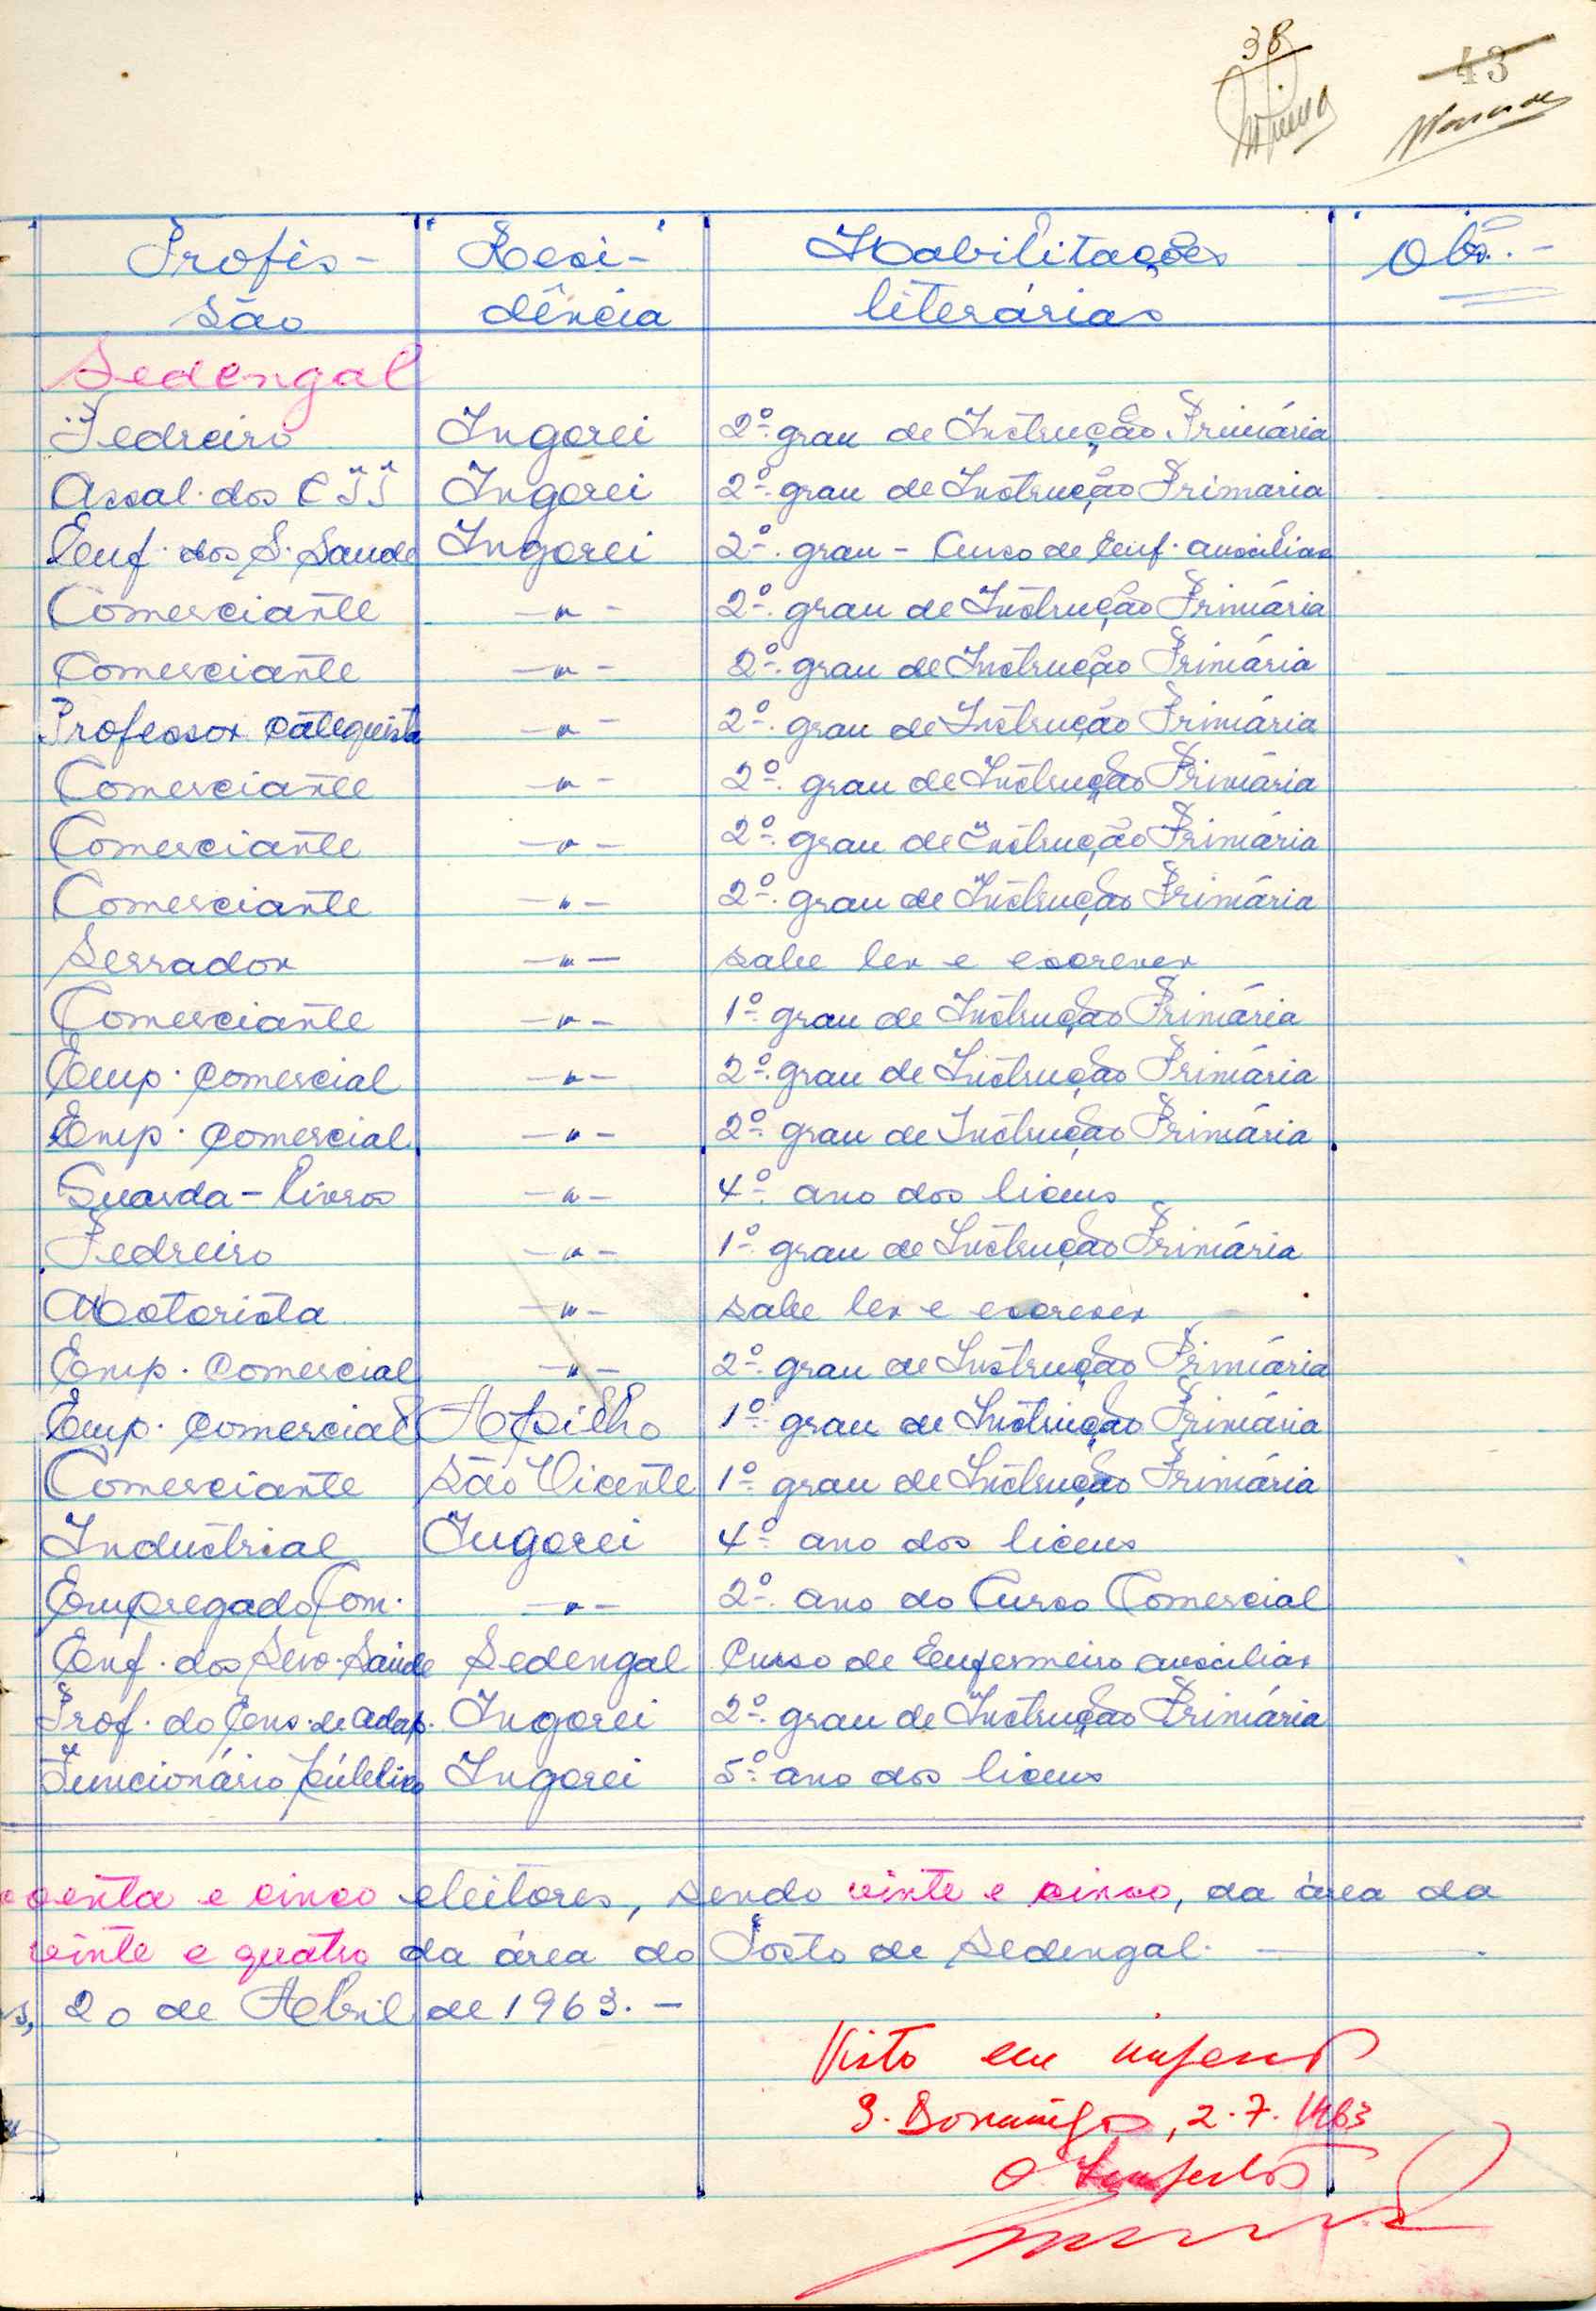 38
43
Profis- Resi- Habilitações Obs.-
são dência literárias
Sedengal
Pedreiro Ingorei 2º. grau de Instrução Primária
Assal. dos CTT Ingorei 2º. grau de Instrução Primária
Enf. dos S. Saude Ingorei 2º. grau - Curso de Enf. auxiliar
Comerciante —"— 2º. grau de Instrução Primária
Comerciante —"— 2º. grau de Instrução Primária
Professor catequista —"— 2º. grau de Instrução Primária
Comerciante —"— 2º. grau de Instrução Primária
Comerciante —"— 2º. grau de Instrução Primária
Comerciante —"— 2º. grau de Instrução Primária
Serrador —"— sabe ler e escrever
Comerciante —"— 1º. grau de Instrução Primária
Emp. comercial —"— 2º. grau de Instrução Primária
Emp. comercial —"— 2º. grau de Instrução Primária
Guarda-livros —"— 4º. ano dos liceus
Pedreiro —"— 1º. grau de Instrução Primária
Motorista —"— sabe ler e escrever
Emp. comercial —"— 2º. grau de Instrução Primária
Emp. comercial Apilho 1º. grau de Instrução Primária
Comerciante São Vicente 1º. grau de Instrução Primária
Industrial Ingorei 4º. ano dos liceus
Empregado Com. —"— 2º. ano do Curso Comercial
Enf. dos Serv. Saúde Sedengal Curso de Enfermeiro auxiliar
Prof. do Ens. de adap. Ingorei 2º. grau de Instrução Primária
Funcionário público Ingorei 5º. ano dos liceus
oenta e cinco eleitores, sendo vinte e cinco, da área da
vinte e quatro da área do Posto de Sedengal. —
s, 20 de Abril de 1963. —
Visto em
S. Domingos, 2.7.1963
O